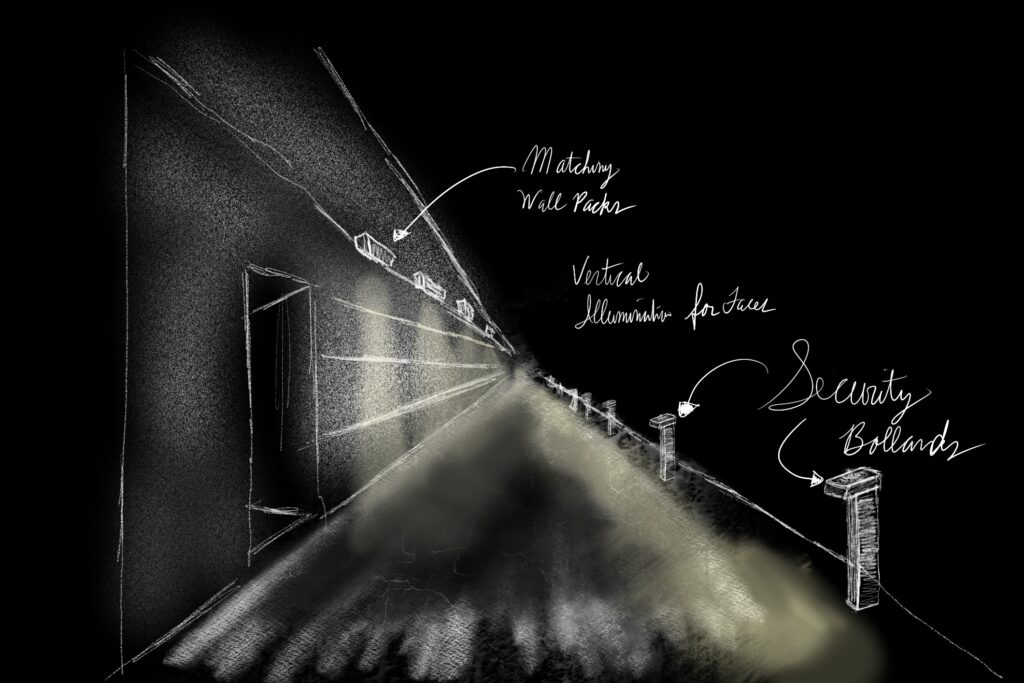 Matching
Wall Packs
Vertical
Illumination for Faces
Security
Bollards